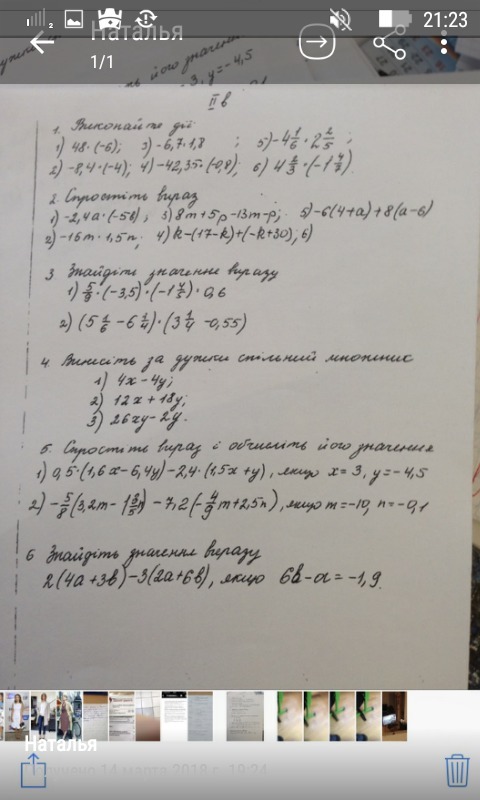 2
21:23
Наталья
1/1
ть його значенн
-3, y=-4,5
II в
1. Виконайте дії
1) 48·(-6); 3) -6,7·1,8 ; 5) -4 1/6 · 2 2/5 ;
2) -8,4·(-4); 4) -42,35·(-0,8); 6) 4 2/3 · (-1 4/7).
2. Спростіть вираз
1) -2,4a·(-5b); 3) 8m+5p-13m-p; 5) -6(4+a)+8(a-6)
2) -16m·1,5n; 4) k-(17-k)+(-k+30); 6)
3 Знайдіть значення виразу
1) 5/9·(-3,5)·(-1 4/5)·0,6
2) (5 1/6 - 6 1/4)·(3 1/4 - 0,55)
4. Винесіть за дужки спільний множник
1) 4x-4y;
2) 12x+18y;
3) 26xy-2y.
5. Спростіть вираз і обчисліть його значення
1) 0,5·(1,6x-6,4y)-2,4·(1,5x+y), якщо x=3, y=-4,5
2) -5/8(3,2m-1 3/5n)-7,2(-4/9m+2,5n), якщо m=-10, n=-0,1
6 Знайдіть значення виразу
2(4a+3b)-3(2a+6b), якщо 6b-a=-1,9.
Наталья
14 марта 2018 г. 19:24